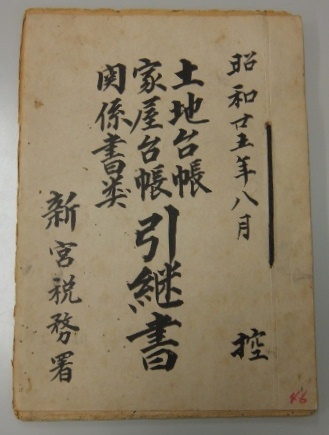 昭和廿五年八月
控
土地台帳
家屋台帳
関係書类
引継書
新宮税務署
46